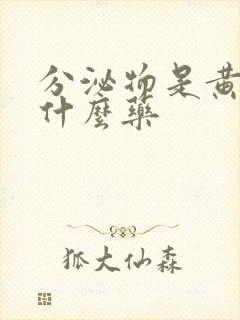 分泌物是黄
什麼藥
狐大仙森